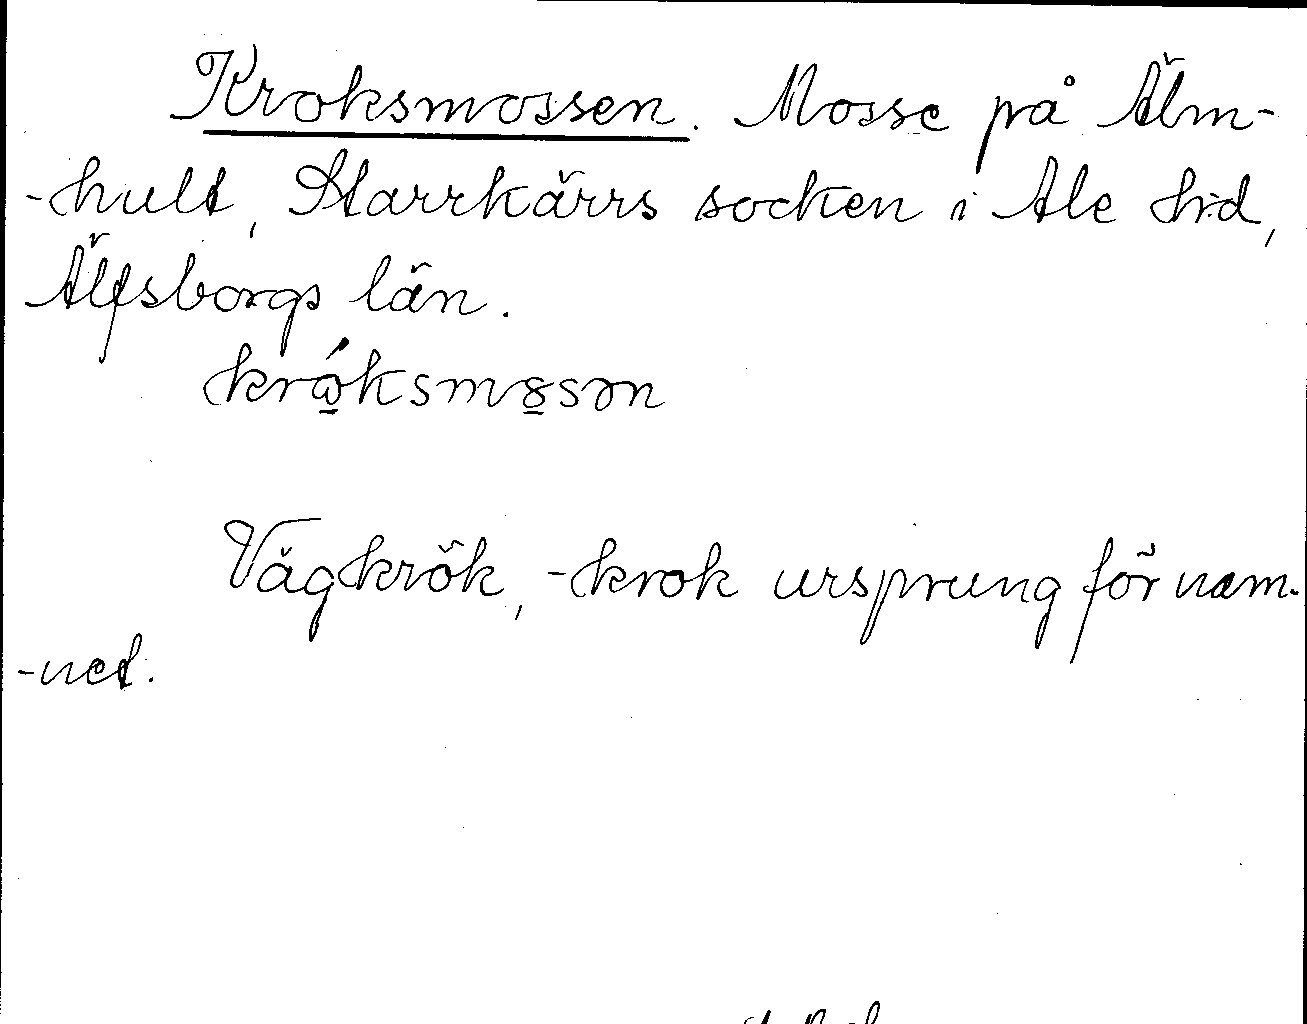 Kroksmossen. Mosse på Älm-
-hult, Starrkärrs socken i Ale hd,
Älfsborgs län.
krώ̲ksm8̲sən
Vägkrök, -krok ursprung för nam-
-net.